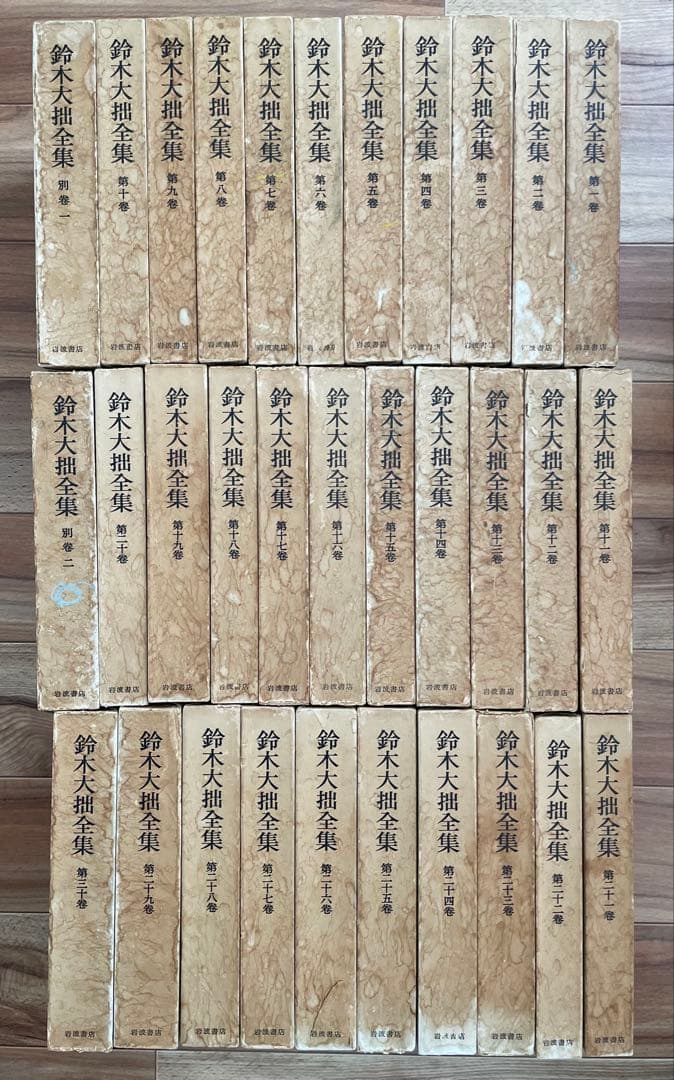 鈴木大拙全集 第一卷 岩波書店
鈴木大拙全集 第二卷 岩波書店
鈴木大拙全集 第三卷 岩波書店
鈴木大拙全集 第四卷 岩波書店
鈴木大拙全集 第五卷 岩波書店
鈴木大拙全集 第六卷
鈴木大拙全集 第七卷 岩波書店
鈴木大拙全集 第八卷 岩波書店
鈴木大拙全集 第九卷 岩波書店
鈴木大拙全集 第十卷 岩波書店
鈴木大拙全集 別卷一 岩波書店
鈴木大拙全集 第十一卷 岩波書店
鈴木大拙全集 第十二卷 岩波書店
鈴木大拙全集 第十三卷 岩波書店
鈴木大拙全集 第十四卷 岩波書店
鈴木大拙全集 第十五卷 岩波書店
鈴木大拙全集 第十六卷 岩波書店
鈴木大拙全集 第十七卷 岩波書店
鈴木大拙全集 第十八卷 岩波書店
鈴木大拙全集 第十九卷 岩波書店
鈴木大拙全集 第二十卷 岩波書店
鈴木大拙全集 別卷二 岩波書店
鈴木大拙全集 第二十一卷 岩波書店
鈴木大拙全集 第二十二卷 岩波書店
鈴木大拙全集 第二十三卷 岩波書店
鈴木大拙全集 第二十四卷
鈴木大拙全集 第二十五卷 岩波書店
鈴木大拙全集 第二十六卷 岩波書店
鈴木大拙全集 第二十七卷 岩波書店
鈴木大拙全集 第二十八卷 岩波書店
鈴木大拙全集 第二十九卷 岩波書店
鈴木大拙全集 第三十卷 岩波書店